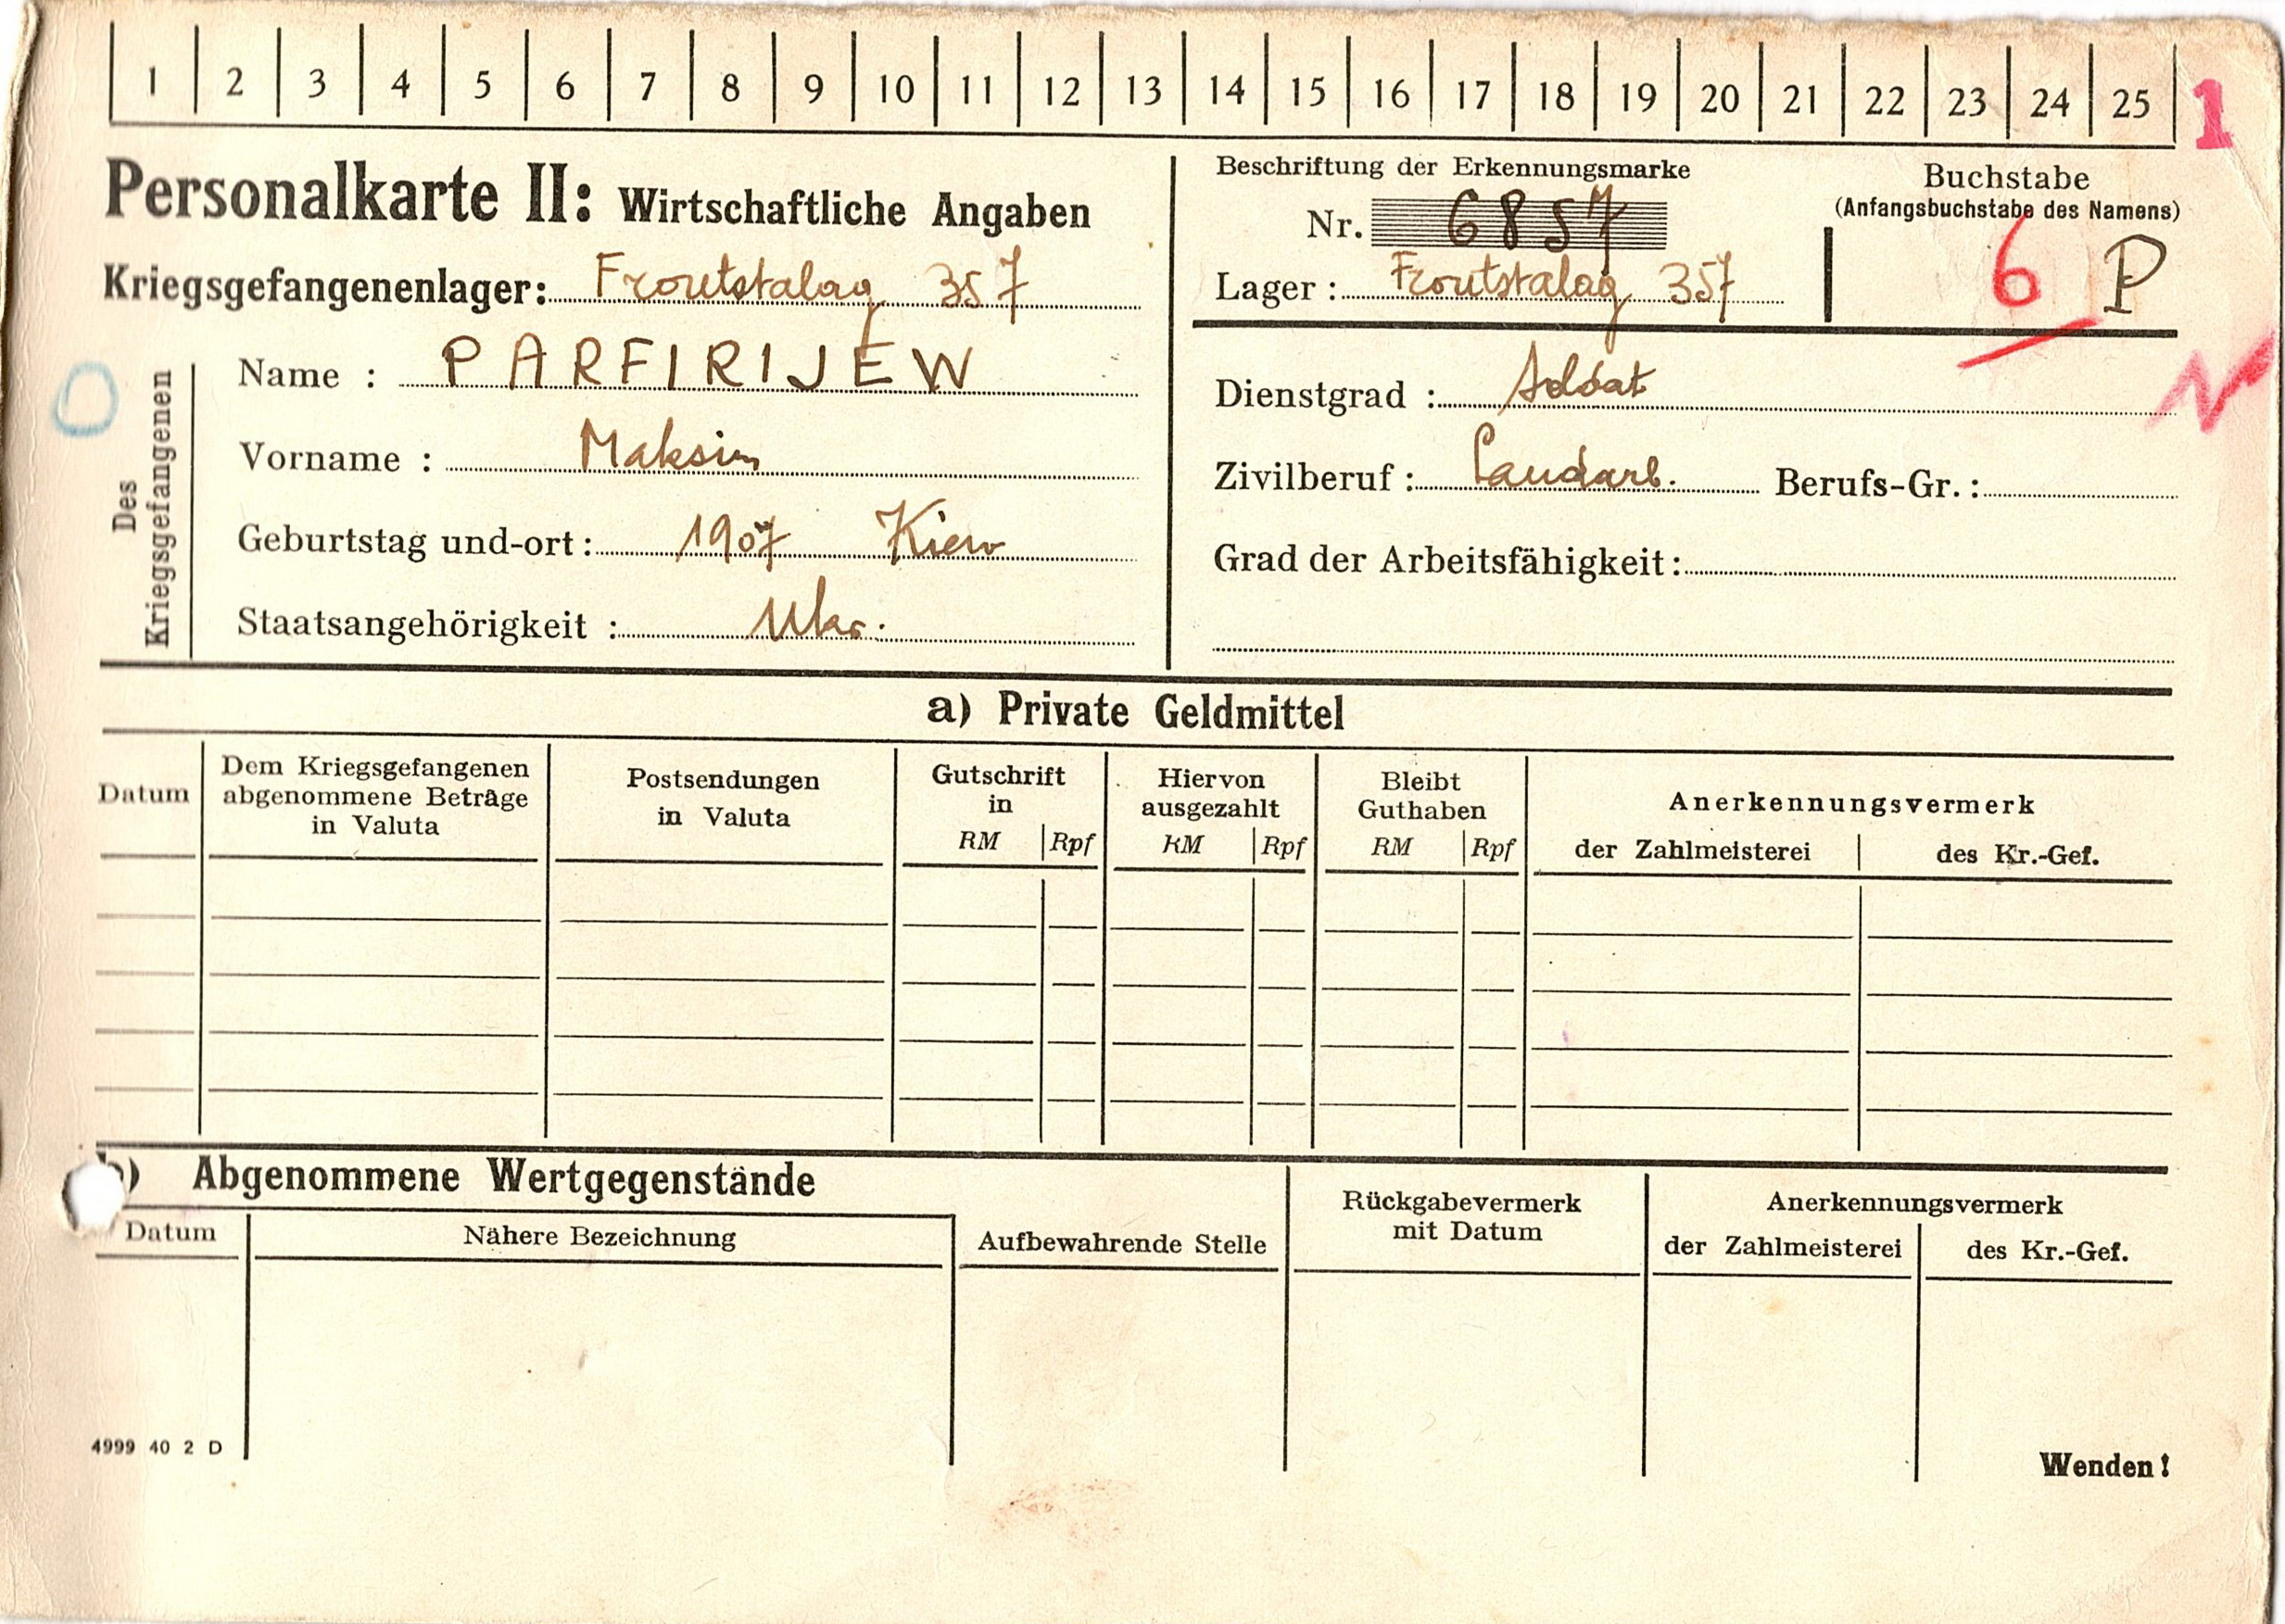 1 2 3 4 5 6 7 8 9 10 11 12 13 14 15 16 17 18 19 20 21 22 23 24 25 1
Personalkarte II: Wirtschaftliche Angaben
Beschriftung der Erkennungsmarke
Nr. 6857
Lager: Frontstalag 357
Buchstabe
(Anfangsbuchstabe des Namens)
6 P
Kriegsgefangenenlager: Frontstalag 357
Des
Kriegsgefangenen
Name : PARFIRIJEW
Vorname : Maksim
Geburtstag und-ort: 1907 Kiew
Staatsangehörigkeit : Ukr.
Dienstgrad : Soldat
Zivilberuf: Landarb. Berufs-Gr.:
Grad der Arbeitsfähigkeit:
a) Private Geldmittel
Datum
Dem Kriegsgefangenen
abgenommene Beträge
in Valuta
Postsendungen
in Valuta
Gutschrift
in
RM Rpf
Hiervon
ausgezahlt
RM Rpf
Bleibt
Guthaben
RM Rpf
Anerkennungsvermerk
der Zahlmeisterei des Kr.-Gef.
b) Abgenommene Wertgegenstände
Datum
Nähere Bezeichnung
Aufbewahrende Stelle
Rückgabevermerk
mit Datum
Anerkennungsvermerk
der Zahlmeisterei des Kr.-Gef.
4999 40 2 D
Wenden!